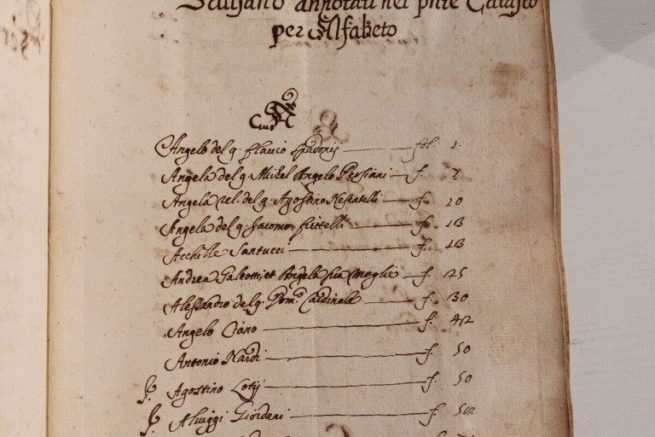 annotati nel pnte Catasto
per Alfabeto
A
Angelo del q. Flavio fol. 1
Angela del q. Michel Angelo Persiani f. 7
Angela del q. Agostino f. 10
Angela del q. Jacomo f. 18
Acchille Santucci f. 18
Andrea Galeotti et Angela sua Moglie f. 25
Alessandro del q. Dom.co Cardinale f. 30
Angelo Ciano f. 42
Antonio Nardi f. 50
Agostino Lotij f. 50
Aluiggi Giordani f. 52